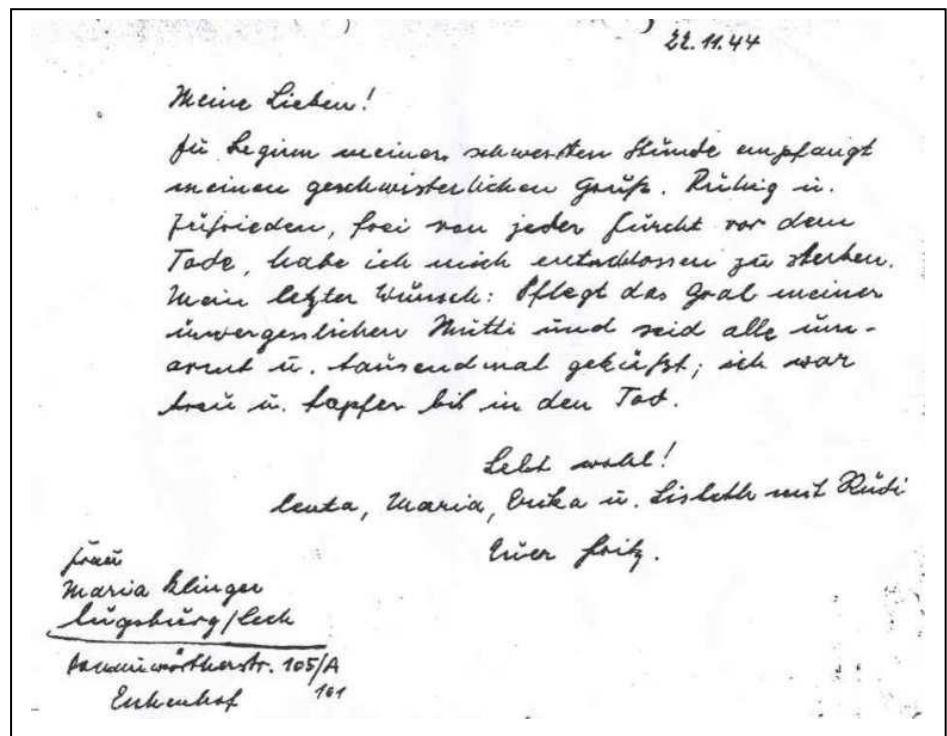 22.11.44
Meine Lieben!
Zu Beginn meiner schwersten Stunde empfangt
meinen geschwisterlichen Gruß. Ruhig u.
Zufrieden, frei von jeder Furcht vor dem
Tode, habe ich mich entschlossen zu sterben.
Mein letzter Wunsch: Pflegt das Grab meiner
unvergesslichen Mutti und seid alle um-
armt u. tausendmal geküßt; ich war
treu u. tapfer bis in den Tod.
Lebt wohl!
Centa, Maria, Erika u. Lisbeth mit Rudi
Euer Fritz.
Frau
Maria Klinger
Augsburg/Lech
Donauwörtherstr. 105/A
161